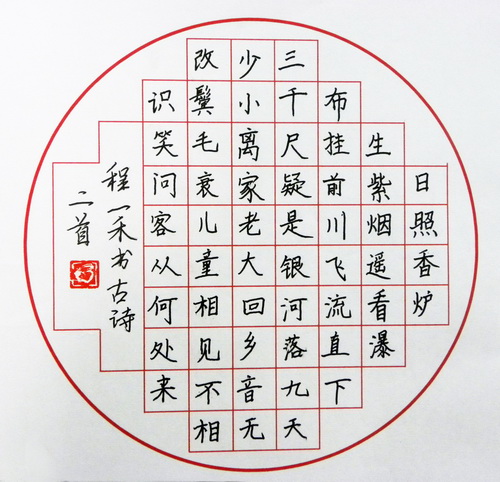 日照香炉
生紫烟遥看瀑
布挂前川飞流直下
三千尺疑是银河落九天
少小离家老大回乡音无
改鬓毛衰儿童相见不相
识笑问客从何处来
程一禾书古诗
二首